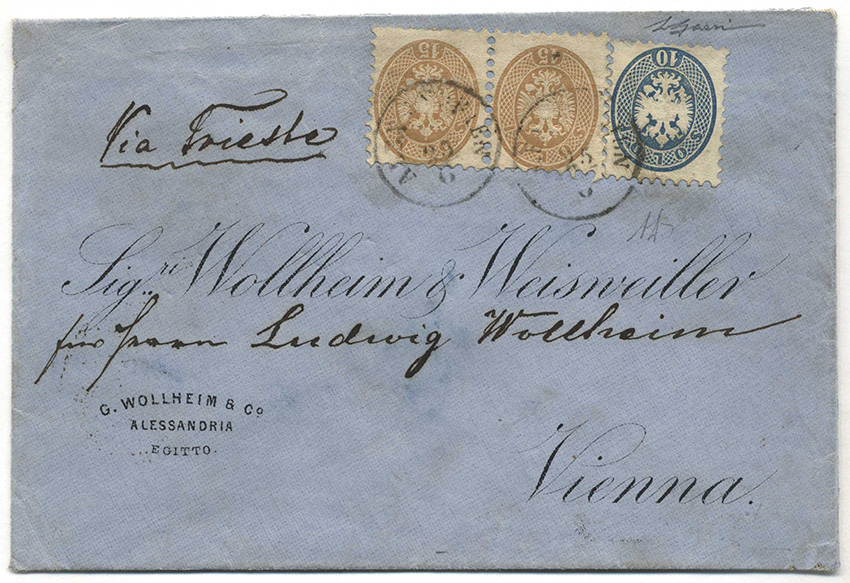 15 15 10
Via Trieste
Sig.ri Wollheim & Weisweiller
für Herrn Ludwig Wollheim
G. WOLLHEIM & Co
ALESSANDRIA
EGITTO.
Vienna.